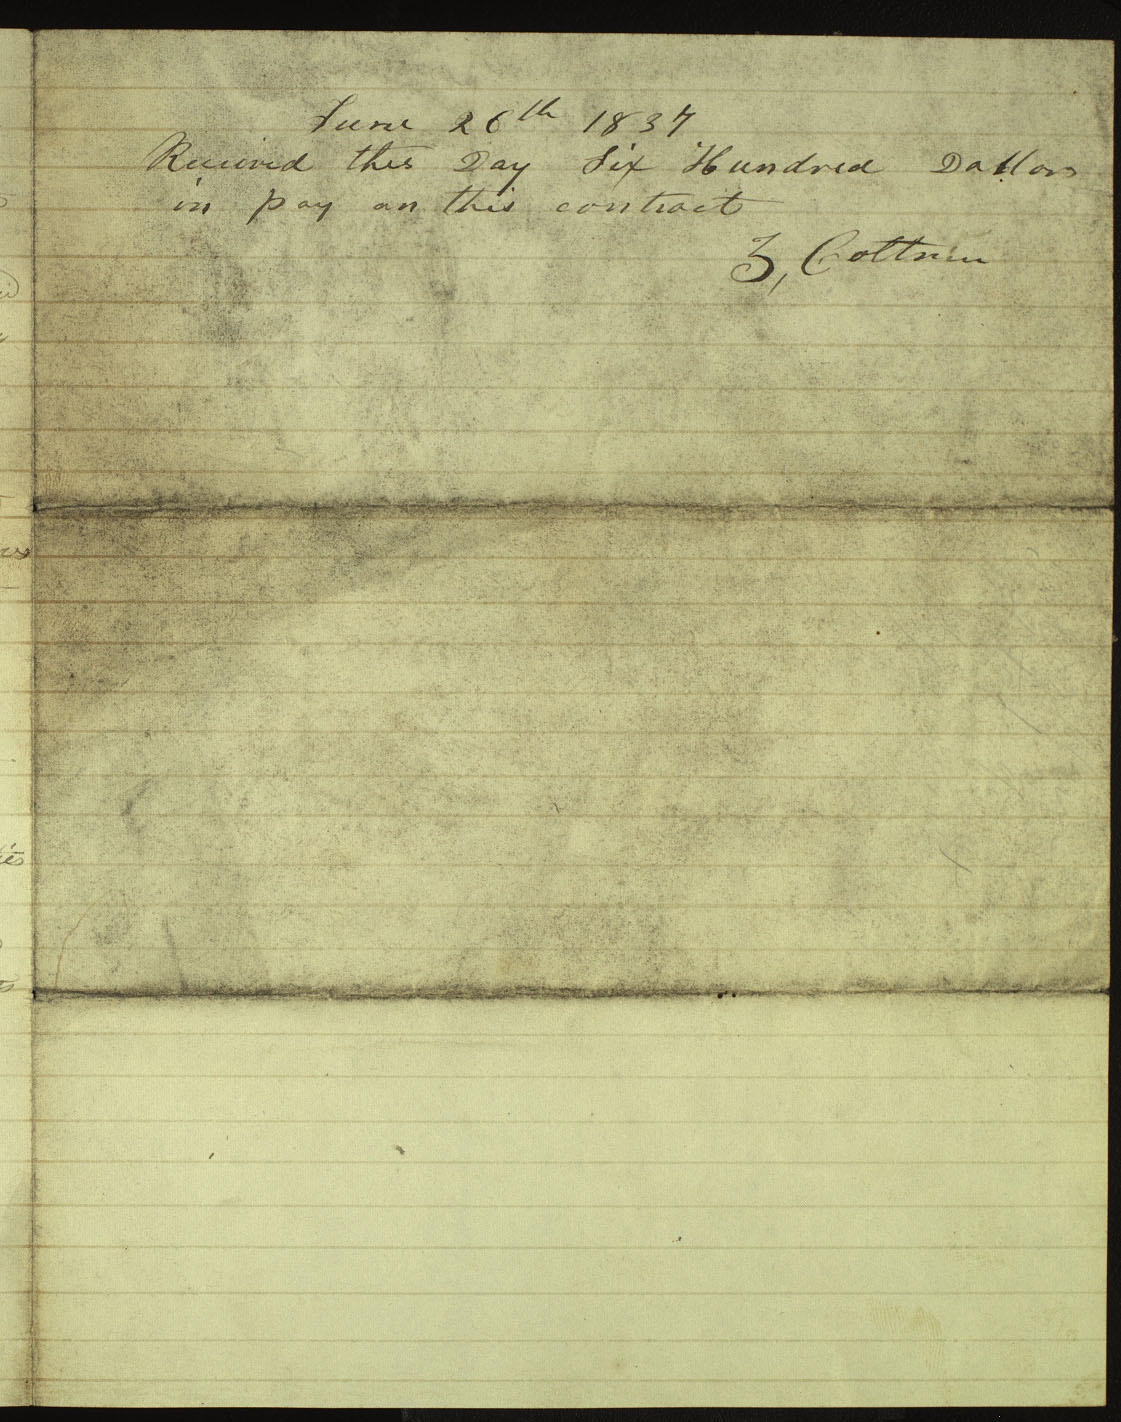 June 26th 1837
Recieved this Day Six Hundred Dollars
in pay on this contract
Z, Cottrin